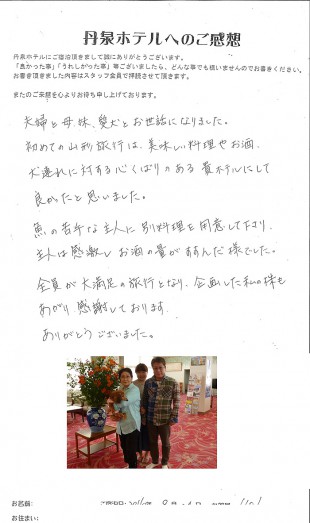 丹泉ホテルへのご感想
丹泉ホテルにご宿泊頂きまして誠にありがとうございます。
「良かった事」「うれしかった事」等ございましたら、どんな事でも構いませんのでお書きください。
お書き頂きました内容はスタッフ全員で拝読させて頂きます。
またのご来館を心よりお待ち申し上げております。
夫婦と母、妹、愛犬とお世話になりました。
初めての山形旅行は、美味しい料理やお酒、
犬連れに対する心くばりのある貴ホテルにして
良かったと思いました。
魚の苦手な主人に別料理を用意して下さり、
主人は感激しお酒の量がすすんだ様でした。
全員が大満足の旅行となり、企画した私の株も
あがり感謝しております。
ありがとうございました。
お名前:
お住まい: